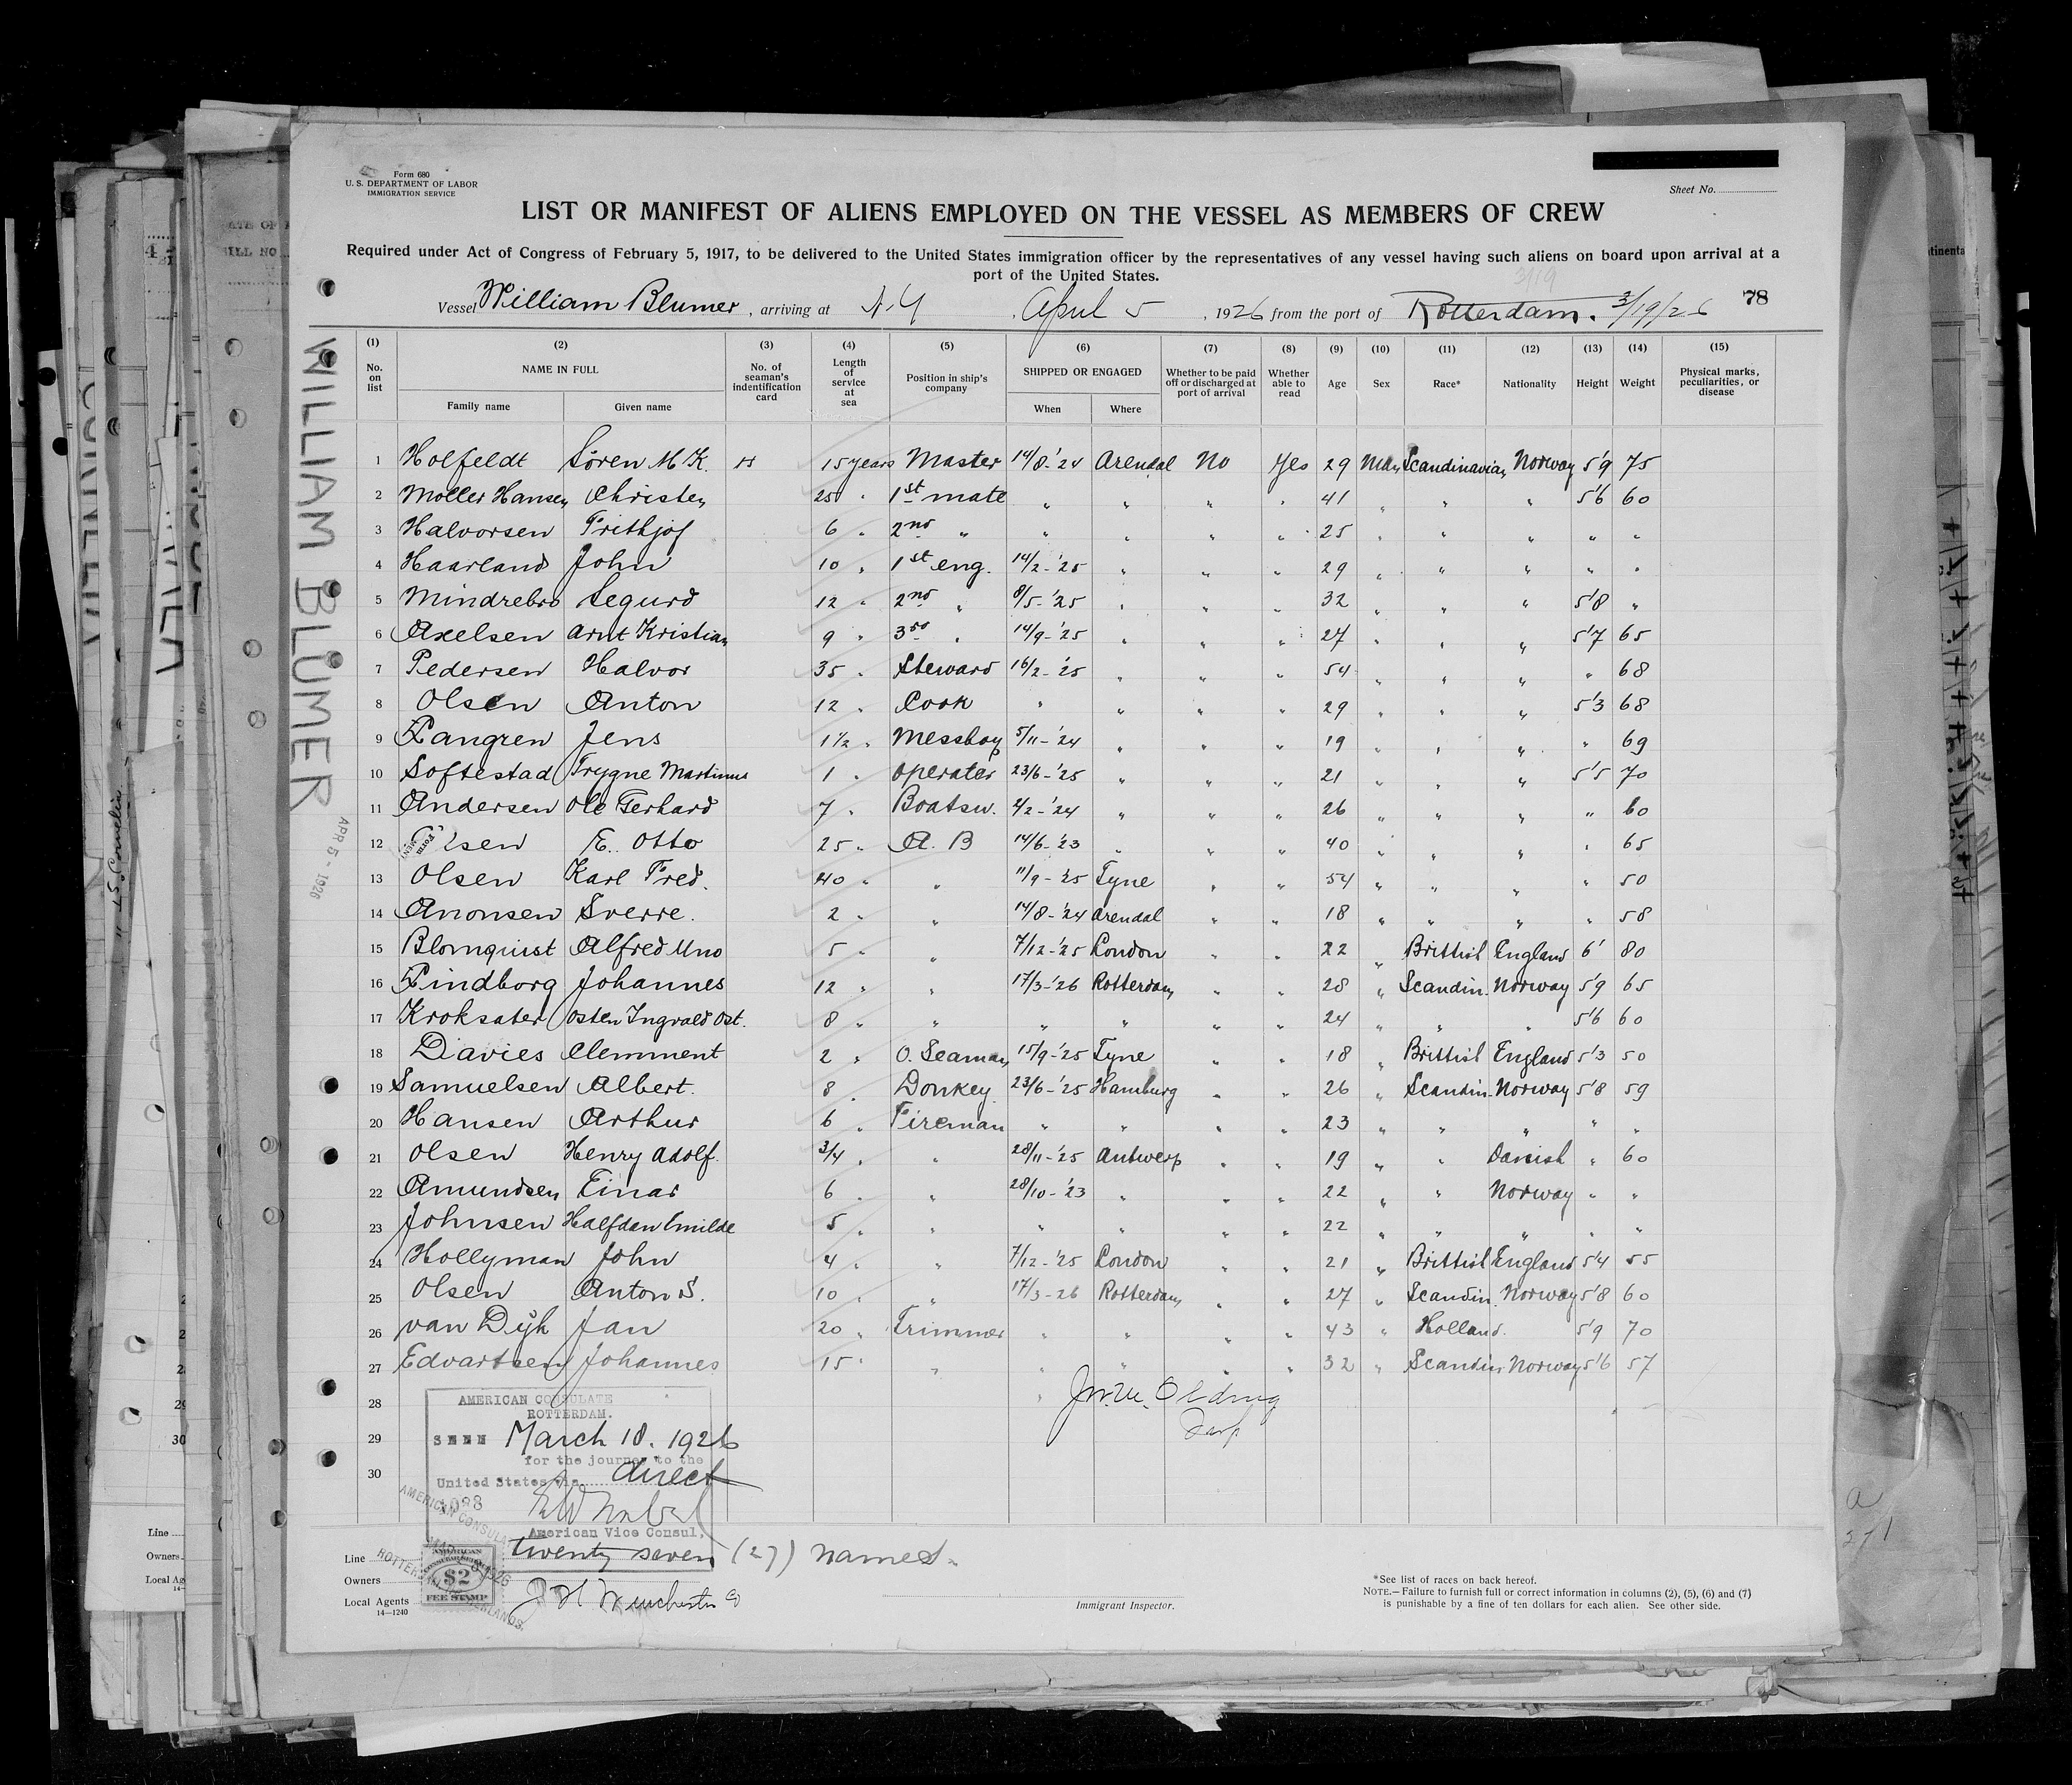 Form 680
U. S. DEPARTMENT OF LABOR
IMMIGRATION SERVICE
Sheet No.
LIST OR MANIFEST OF ALIENS EMPLOYED ON THE VESSEL AS MEMBERS OF CREW
Required under Act of Congress of February 5, 1917, to be delivered to the United States immigration officer by the representatives of any vessel having such aliens on board upon arrival at a
port of the United States.
3/19
Vessel William Blumer, arriving at N.Y. April 5, 1926 from the port of Rotterdam. 3/19/26 78
WILLIAM BLÜMER
APR 5 - 1926
(1) (2) (3) (4) (5) (6) (7) (8) (9) (10) (11) (12) (13) (14) (15)
No. on list NAME IN FULL Family name Given name No. of seaman's indentification card Length of service at sea Position in ship's company SHIPPED OR ENGAGED When Where Whether to be paid off or discharged at port of arrival Whether able to read Age Sex Race* Nationality Height Weight Physical marks, peculiarities, or disease
1 Holfeldt Sören M K. 15 years Master 14/8-'24 Arendal No Yes 29 Man Scandinavian Norway 5'9 75
2 Moller Hansen Christen 25 " 1st mate " " " " 41 " " " 5'6 60
3 Halvorsen Frithjof 6 " 2nd " " " " " 25 " " " " "
4 Haarland John 10 " 1st eng. 14/2-'25 " " " 29 " " " " "
5 Mindrebro Segurd 12 " 2nd " 8/5-'25 " " " 32 " " " 5'8 "
6 Axelsen Arnt Kristian 9 " 3rd " 14/9-'25 " " " 27 " " " 5'7 65
7 Pedersen Halvor 35 " Steward 16/2-'25 " " " 54 " " " " 68
8 Olsen Anton 12 " Cook " " " " 29 " " " 5'3 68
9 Langren Jens 1½ " Messboy 5/11-'24 " " " 19 " " " " 69
10 Softestad Trygve Martinus 1 " Operater 23/6-'25 " " " 21 " " " 5'5 70
11 Andersen Ole Gerhard 7 " Boatsw. 4/2-'24 " " " 26 " " " " 60
12 Olsen E. Otto 25 " A. B 14/6-'23 " " " 40 " " " " 65
13 Olsen Karl Fred. 40 " " 11/9-'25 Tyne " " 54 " " " " 50
14 Anonsen Sverre. 2 " " 14/8-'24 Arendal " " 18 " " " " 58
15 Blomquist Alfred Uno 5 " " 7/12-'25 London " " 22 " Brittish England 6' 80
16 Lindborg Johannes 12 " " 17/3-'26 Rotterdam " " 28 " Scandin. Norway 5'9 65
17 Kroksater Osten Ingvald Ost. 8 " " " " " " 24 " " " 5'6 60
18 Davies Clemment 2 " O. Seaman 15/9-'25 Tyne " " 18 " Brittish England 5'3 50
19 Samuelsen Albert. 8 " Donkey 23/6-'25 Hamburg " " 26 " Scandin. Norway 5'8 59
20 Hansen Arthur 6 " Fireman " " " " 23 " " " " "
21 Olsen Henry Adolf. 3/4 " " 28/11-'25 Antwerp " " 19 " " Danish " 60
22 Amundsen Einar 6 " " 28/10-'23 " " " 22 " " Norway " "
23 Johnsen Halfdan Emilde 5 " " " " " " 22 " " " " "
24 Hollyman John 4 " " 7/12-'25 London " " 21 " Brittish England 5'4 55
25 Olsen Anton S. 10 " " 17/3-26 Rotterdam " " 27 " Scandin. Norway 5'8 60
26 van Dijk Jan 20 " Trimmer " " " " 43 " Holland. 5'9 70
27 Edvartsen Johannes 15 " " " " " " 32 " Scandin Norway 5'6 57
28
29
30
AMERICAN CONSULATE
ROTTERDAM.
SEEN March 18. 1926
for the journey to the
United States via direct
American Vice Consul,
twenty seven (27) names.
AMERICAN CONSULAR
$2
FEE STAMP
Line
Owners
Local Agents J H Winchester Co
14—1240
Immigrant Inspector.
*See list of races on back hereof.
NOTE.—Failure to furnish full or correct information in columns (2), (5), (6) and (7)
is punishable by a fine of ten dollars for each alien. See other side.